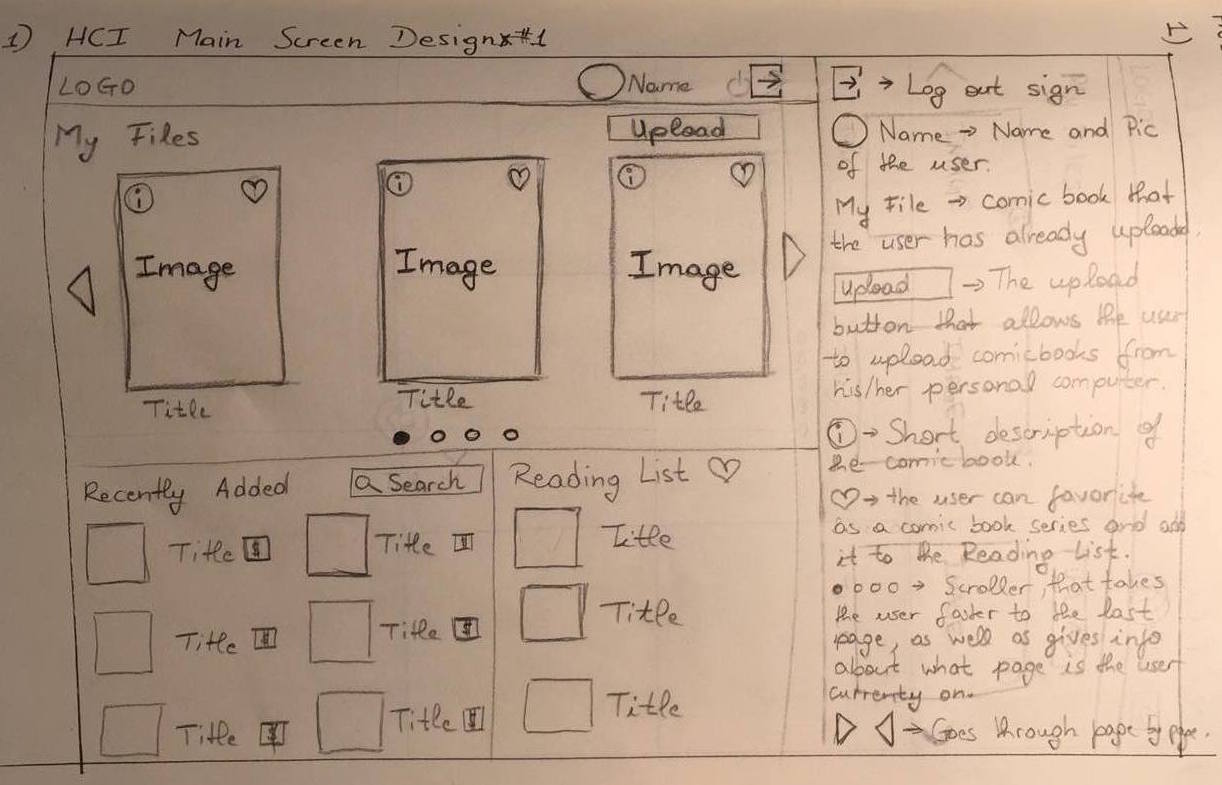 1) HCI Main Screen Design #1
LOGO
Name
My Files
Upload
i
i
i
Image
Image
Image
Title
Title
Title
Recently Added
Search
Title $
Title $
Title $
Title $
Title $
Title $
Reading List
Title
Title
Title
→ Log out sign
Name → Name and Pic
of the user.
My File → comic book that
the user has already uploaded.
Upload → The upload
button that allows the user
to upload comicbooks from
his/her personal computer.
i → Short description of
the comic book.
♡ → the user can favorite
as a comic book series and add
it to the Reading List.
→ Scroller, that takes
the user faster to the last
page, as well as gives info
about what page is the user
currenty on.
→ Goes through page by page.